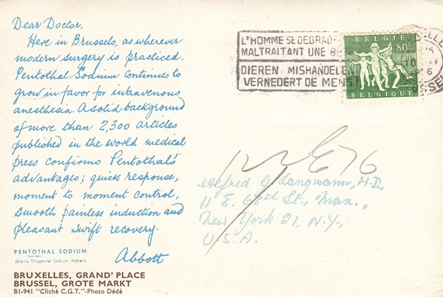 Dear Doctor.
Here in Brussels, as wherever
modern surgery is practiced.
Pentothal Sodium continues to
grow in favor for intravenous
anesthesia. A solid background
of more than 2,300 articles
published in the world medical
press confirms Pentothal's
advantages; quick response,
moment to moment control,
smooth painless induction and
pleasant swift recovery.
Abbott
PENTOTHAL SODIUM
(Sterile Thiopental Sodium, Abbott)
BRUXELLES, GRAND' PLACE
BRUSSEL, GROTE MARKT
BI-941 "Cliché C.G.T."-Photo Dédé
L'HOMME SE DEGRAD
MALTRAITANT UNE B
DIEREN MISHANDELEN
VERNEDERT DE MENS
BELGIE
80
BELGIQUE
Alfred O. Langmann, M.D.,
11 E. 68th St., Man.,
New York 21, N.Y.,
U.S.A.